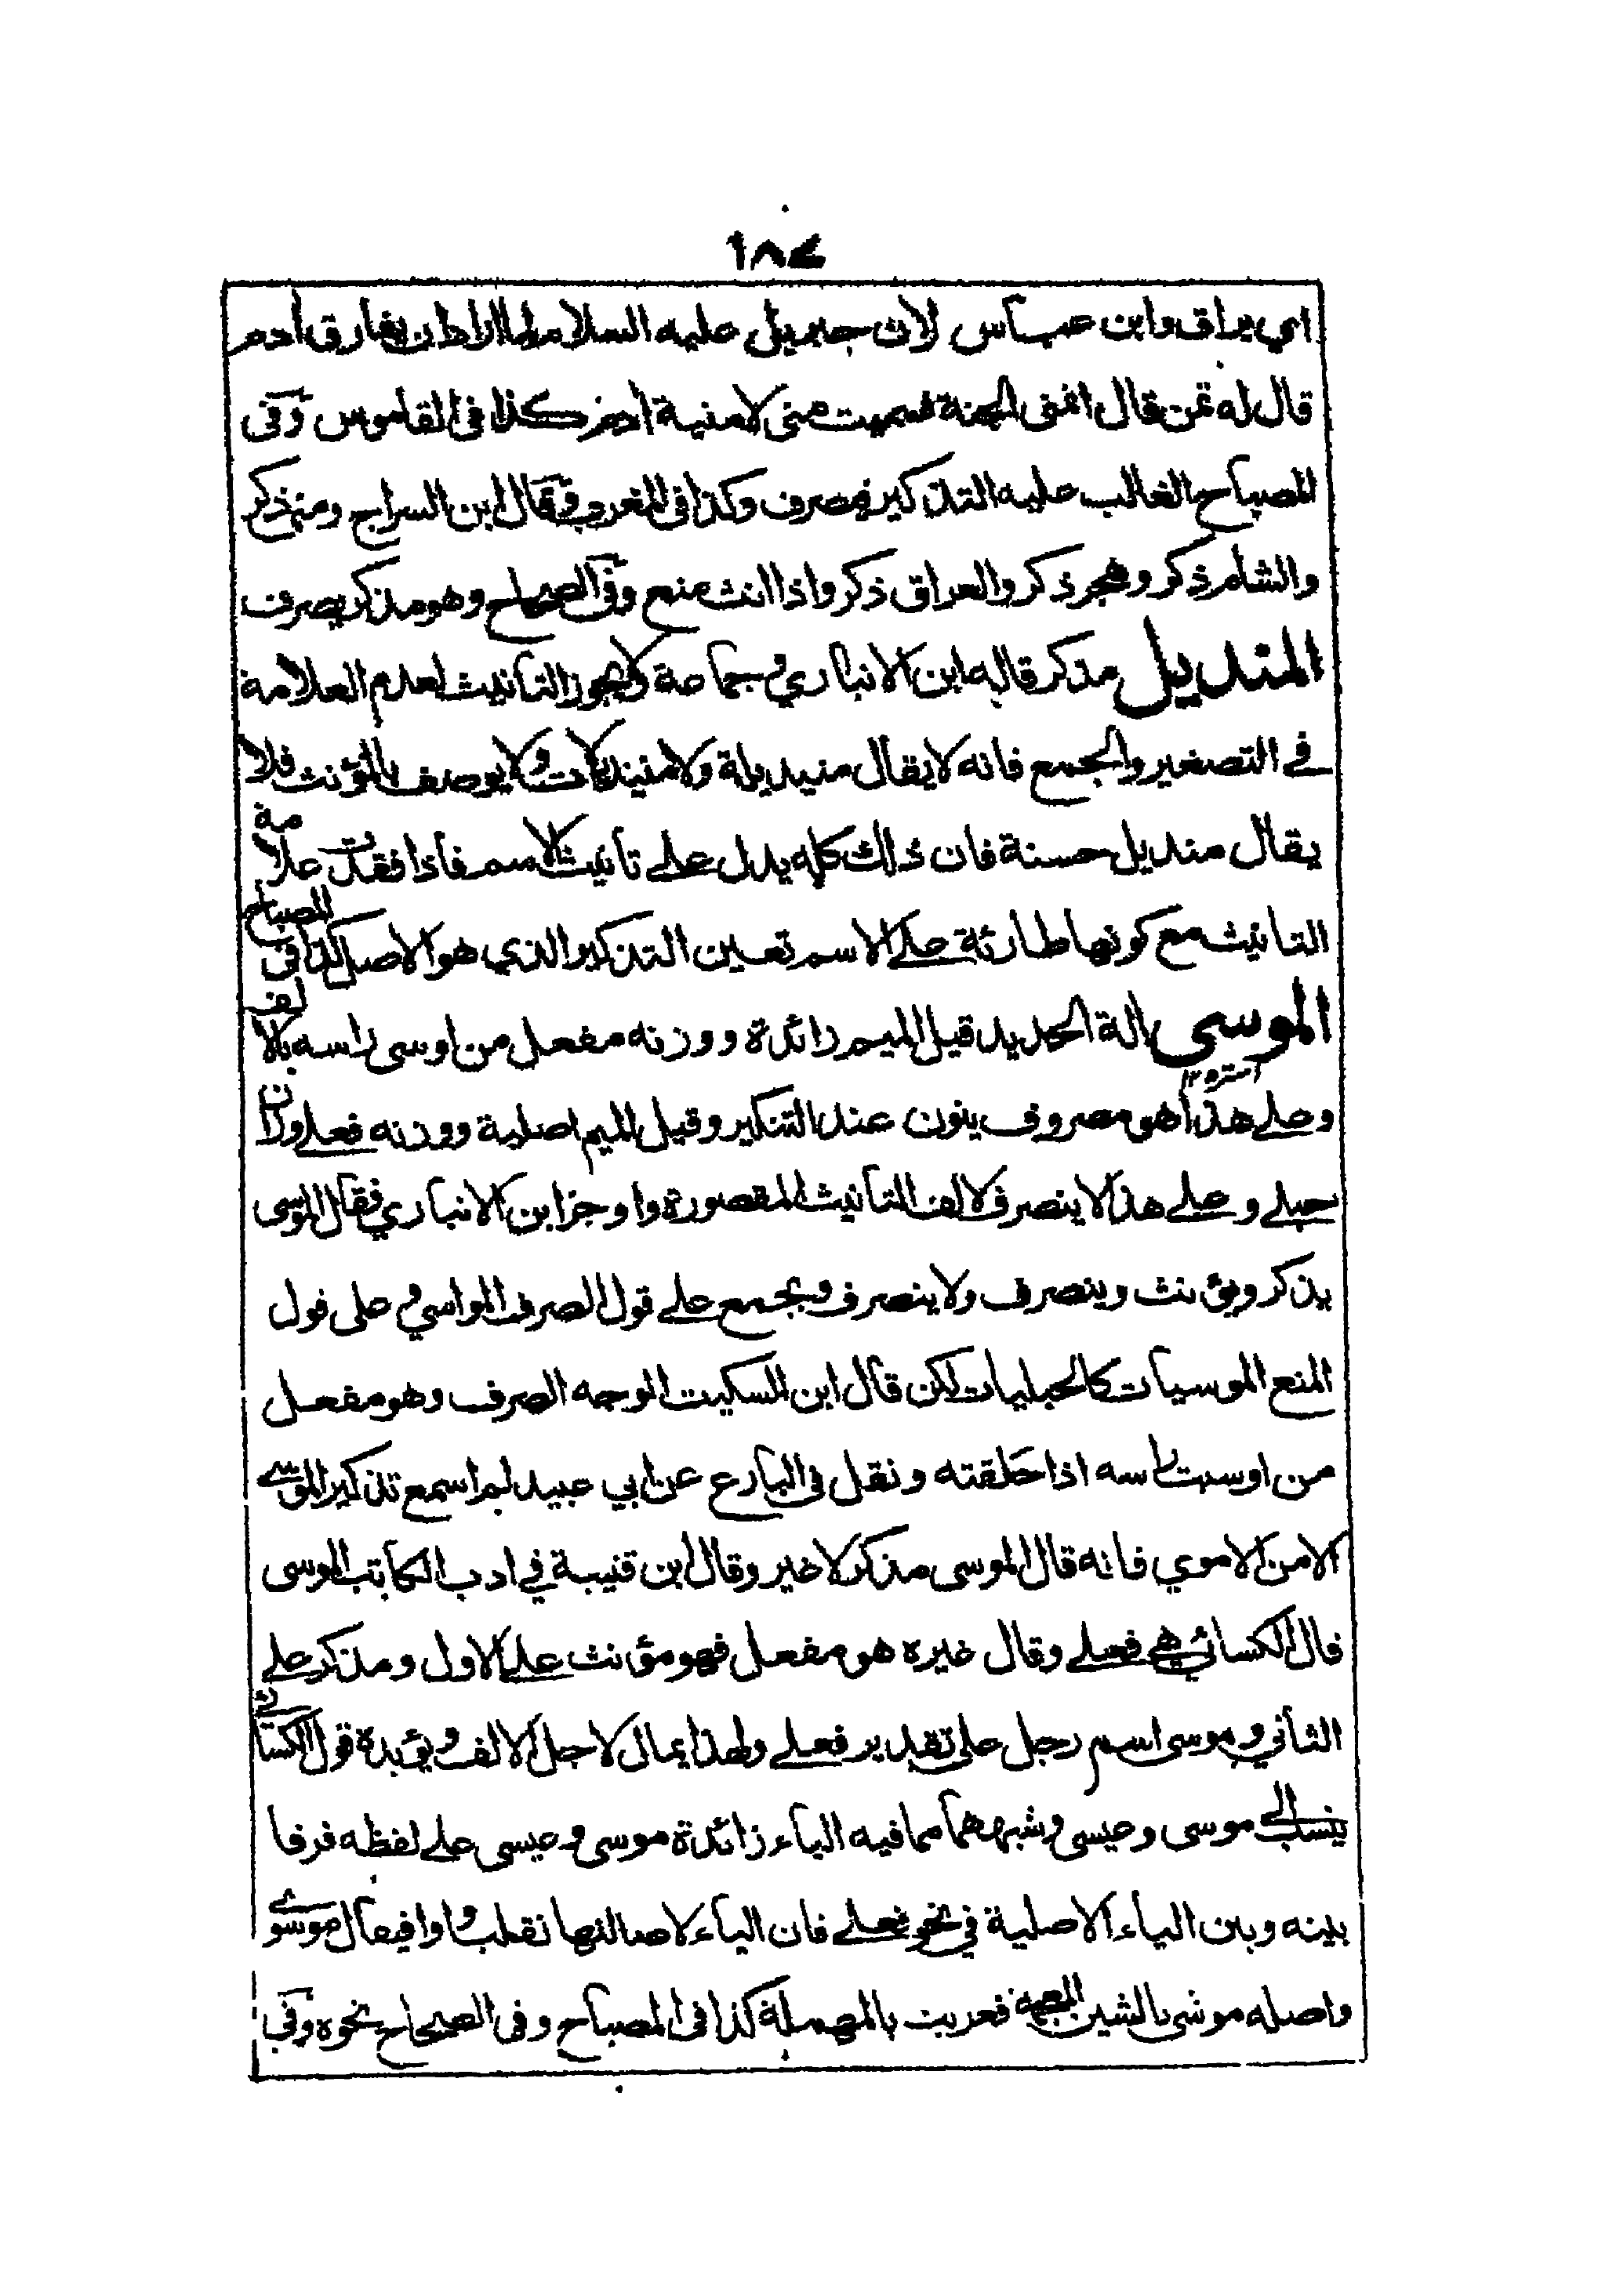 ١٨٤
اي يراق وابن عباس لان جبريل عليه السلام لما اراد ان يفارق ادم
قال له تمن قال اتمنى الجنة فسميت منى لامنية ادم كذا فى القاموس وفى
المصباح الغالب عليه التذكير فيصرف وكذا فى المغرب وقال ابن السراج ومنى ذكر
والشام ذكر وهجر ذكر والعراق ذكر واذا انث منع وفى الصحاح وهو مذكر يصرف
المنديل مذكر قاله ابن الانباري وجماعة ولا يجوز التانيث لعدم العلامة
في التصغير والجمع فانه لا يقال منيديلة ولا منيديلات ولا يوصف بالمؤنث فلا
يقال منديل حسنة فان ذلك كله يدل على تأنيث الاسم فاذا فقدت علامة
التانيث مع كونها طارئة على الاسم تعين التذكير الذي هو الاصل كذا فى المصباح
الموسى الة الحديد قيل الميم زائدة ووزنه مفعل من اوسى راسه بالالف
استره ١٢
وعلى هذا هو مصروف ينون عند التنكير وقيل الميم اصلية ووزنه فعلى وزان
حبلى وعلى هذا لا ينصرف لالف التانيث المقصورة واوجز ابن الانباري فقال الموسى
يذكر ويؤنث وينصرف ولا ينصرف ويجمع على قول الصرف المواسي وعلى قول
المنع الموسيات كالحبليات لكن قال ابن السكيت الوجه الصرف وهو مفعل
من اوسيت راسه اذا حلقته ونقل فى البارع عن ابي عبيد لم اسمع تذكير الموسى
الا من الاموي فانه قال الموسى مذكر لا غير وقال ابن قتيبة في ادب الكاتب الموسى
قال الكسائي هي فعلى وقال غيره هو مفعل فهو مؤنث على الاول ومذكر على
الثاني وموسى اسم رجل على تقدير فعلى ولهذا يمال لاجل الالف ويؤيده قول الكسائي
ينسب الى موسى وعيسى وشبههما مما فيه الياء زائدة موسى وعيسى على لفظه فرقا
بينه وبين الياء الاصلية في نحو معلى فان الياء لاصالتها تقلب واوا فيقال موسوى
واصله موشى بالشين المعجمة فعربت بالمهملة كذا فى المصباح وفى الصحاح نحوه وفى